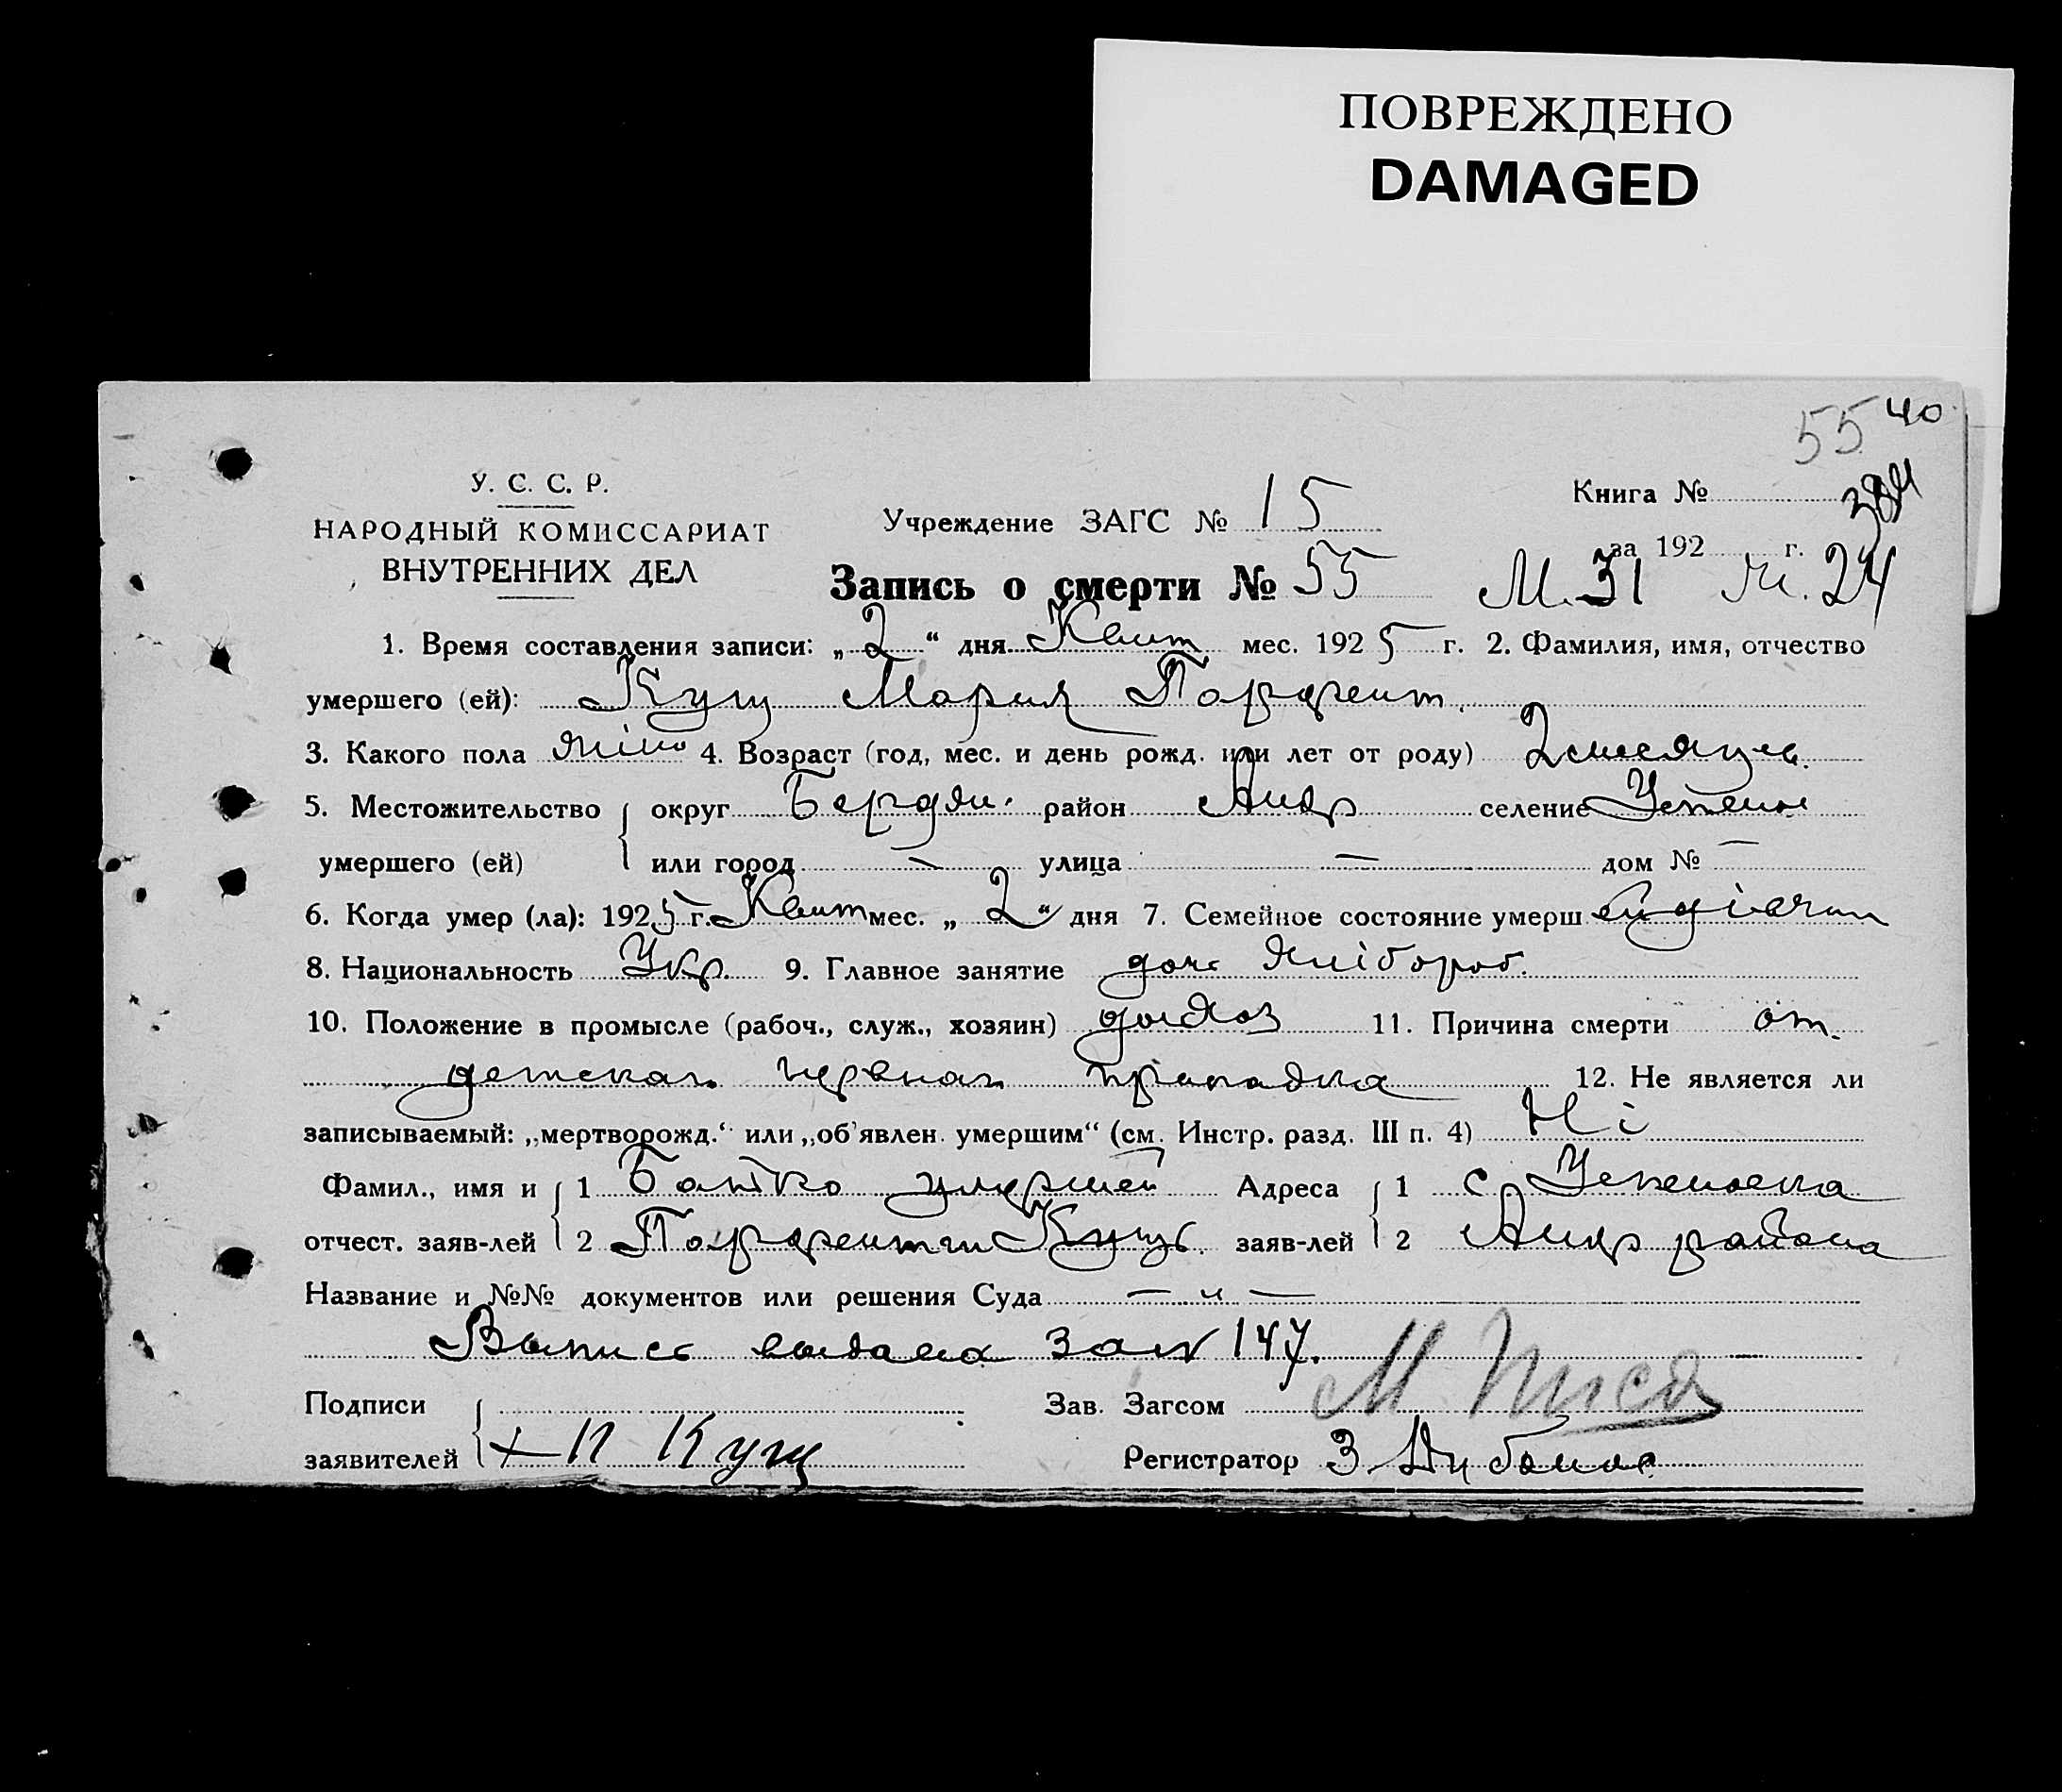 ПОВРЕЖДЕНО
DAMAGED
55 40
384
У. С. С. Р.
НАРОДНЫЙ КОМИССАРИАТ
ВНУТРЕННИХ ДЕЛ
Учреждение ЗАГС № 15
Книга №
за 192 г.
Запись о смерти № 55 М. 31 24
1. Время составления записи: „2“ дня Квит мес. 1925 г. 2. Фамилия, имя, отчество
умершего (ей): Кущ Мария Парфент.
3. Какого пола жіно 4. Возраст (год, мес. и день рожд. или лет от роду) 2 месяцев.
5. Местожительство округ Бердян. район Андр селение
умершего (ей) или город — улица — дом № —
6. Когда умер (ла): 1925 г. Квит мес. „2“ дня 7. Семейное состояние умерш
8. Национальность Укр. 9. Главное занятие доч хлібороб.
10. Положение в промысле (рабоч., служ., хозяин) 11. Причина смерти от
детская нервная припадка 12. Не является ли
записываемый: „мертворожд.“ или „об'явлен. умершим“ (см. Инстр. разд. III п. 4) Ні
Фамил., имя и 1 Батько умершей Адреса 1 с
отчест. заяв-лей 2 Парфентии Кущ. заяв-лей 2 Андр района
Название и №№ документов или решения Суда — „ —
Выпись выдана за № 147.
Подписи Зав. Загсом М.
заявителей + П Кущ Регистратор З.